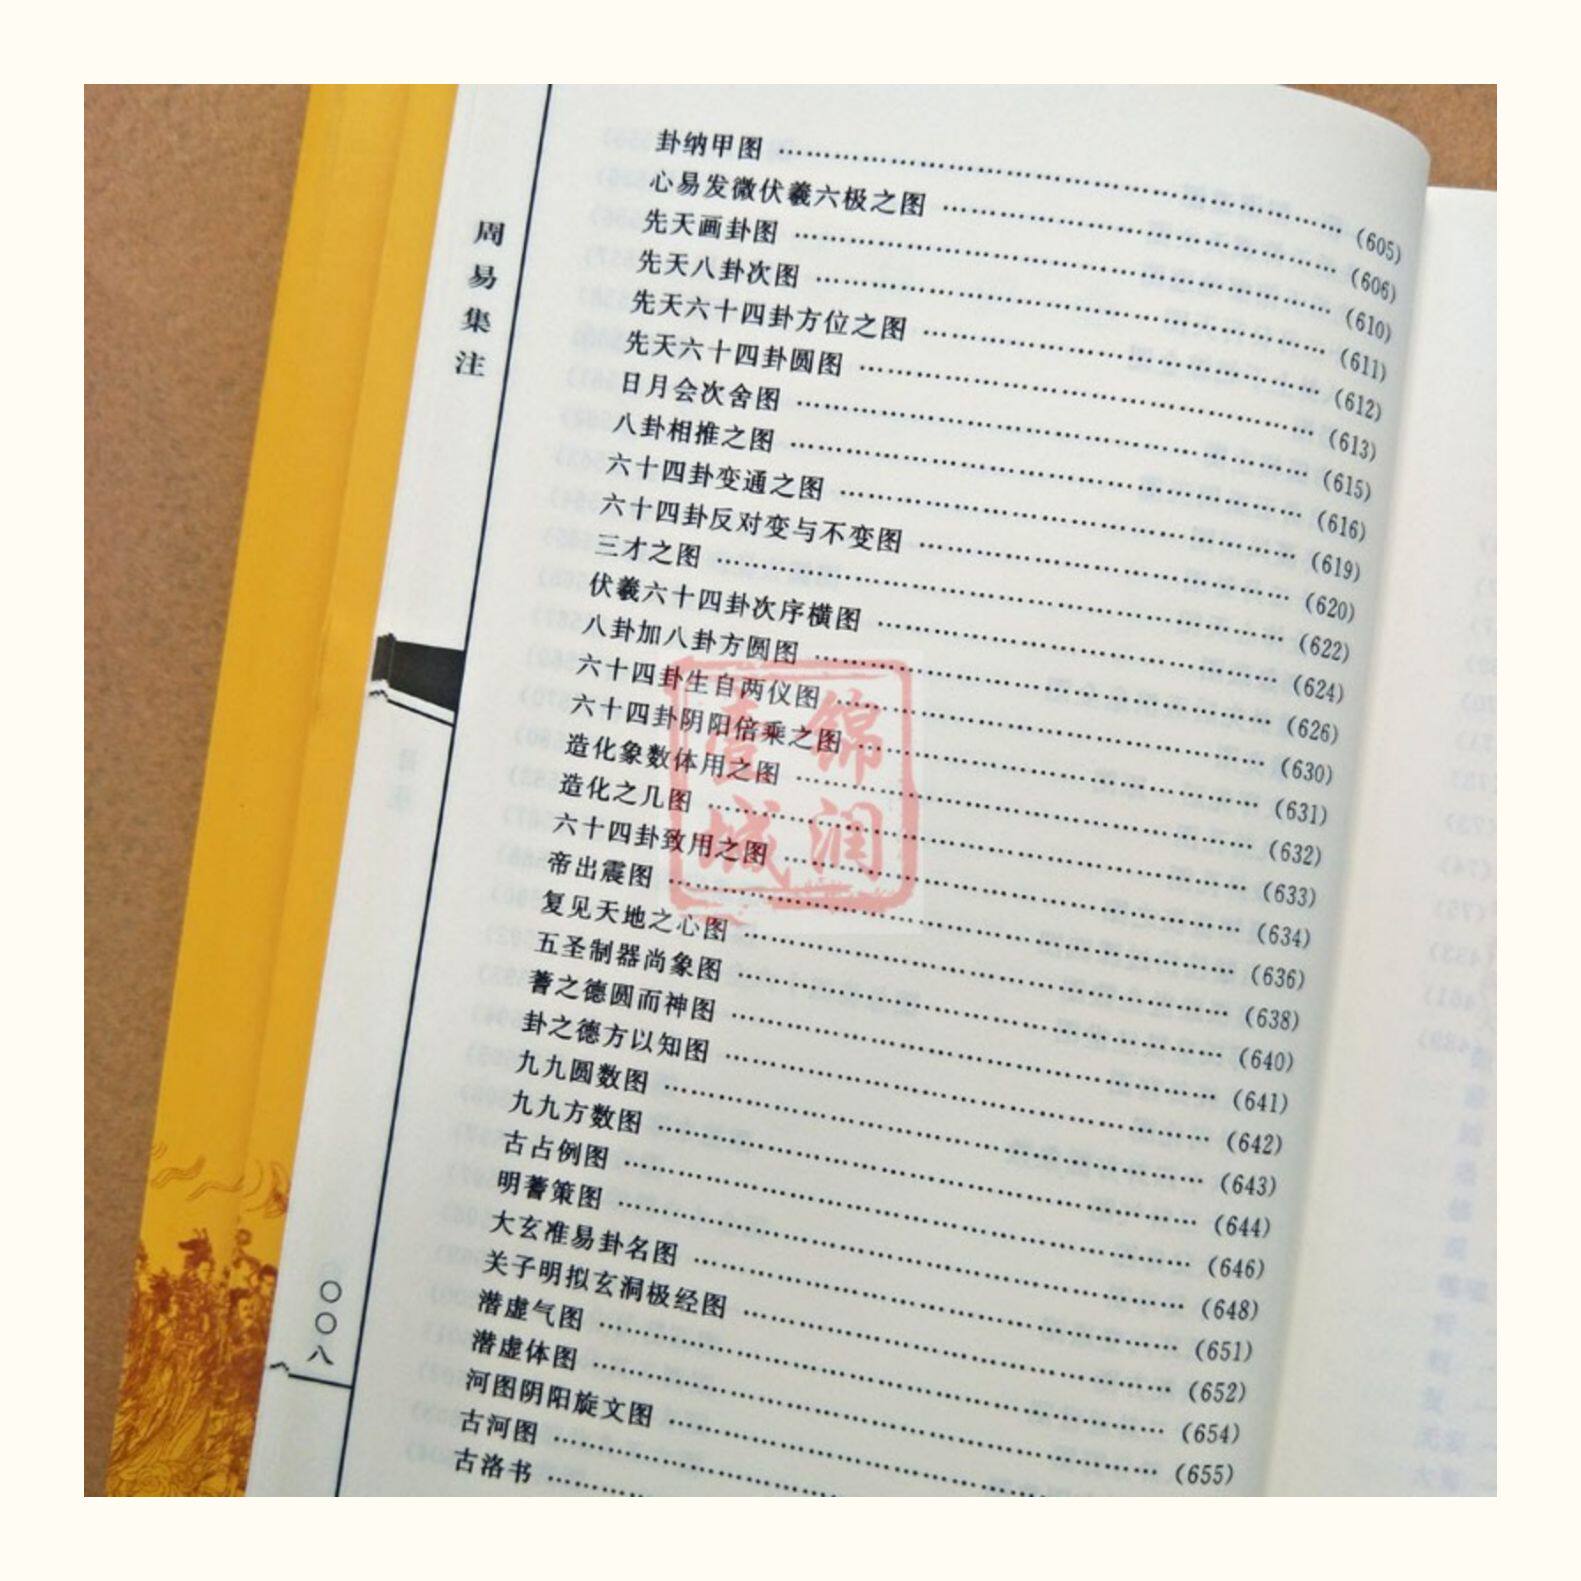 周易集注
〇〇八
卦纳甲图 …… (605)
心易发微伏羲六极之图 …… (606)
先天画卦图 …… (610)
先天八卦次图 …… (611)
先天六十四卦方位之图 …… (612)
先天六十四卦圆图 …… (613)
日月会次舍图 …… (615)
八卦相推之图 …… (616)
六十四卦变通之图 …… (619)
六十四卦反对变与不变图 …… (620)
三才之图 …… (622)
伏羲六十四卦次序横图 …… (624)
八卦加八卦方圆图 …… (626)
六十四卦生自两仪图 …… (630)
六十四卦阴阳倍乘之图 …… (631)
造化象数体用之图 …… (632)
造化之几图 …… (633)
六十四卦致用之图 …… (634)
帝出震图 …… (636)
复见天地之心图 …… (638)
五圣制器尚象图 …… (640)
蓍之德圆而神图 …… (641)
卦之德方以知图 …… (642)
九九圆数图 …… (643)
九九方数图 …… (644)
古占例图 …… (646)
明蓍策图 …… (648)
大玄准易卦名图 …… (651)
关子明拟玄洞极经图 …… (652)
潜虚气图 …… (654)
潜虚体图 …… (655)
河图阴阳旋文图 ……
古河图 ……
古洛书 ……
锦润
壹城